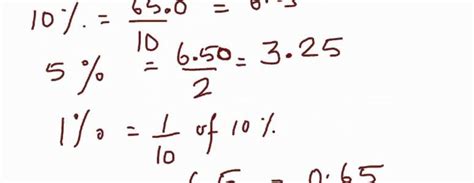 10% = 65.0/10 =
5% = 6.50/2 = 3.25
1% = 1/10 of 10%
= 0.65